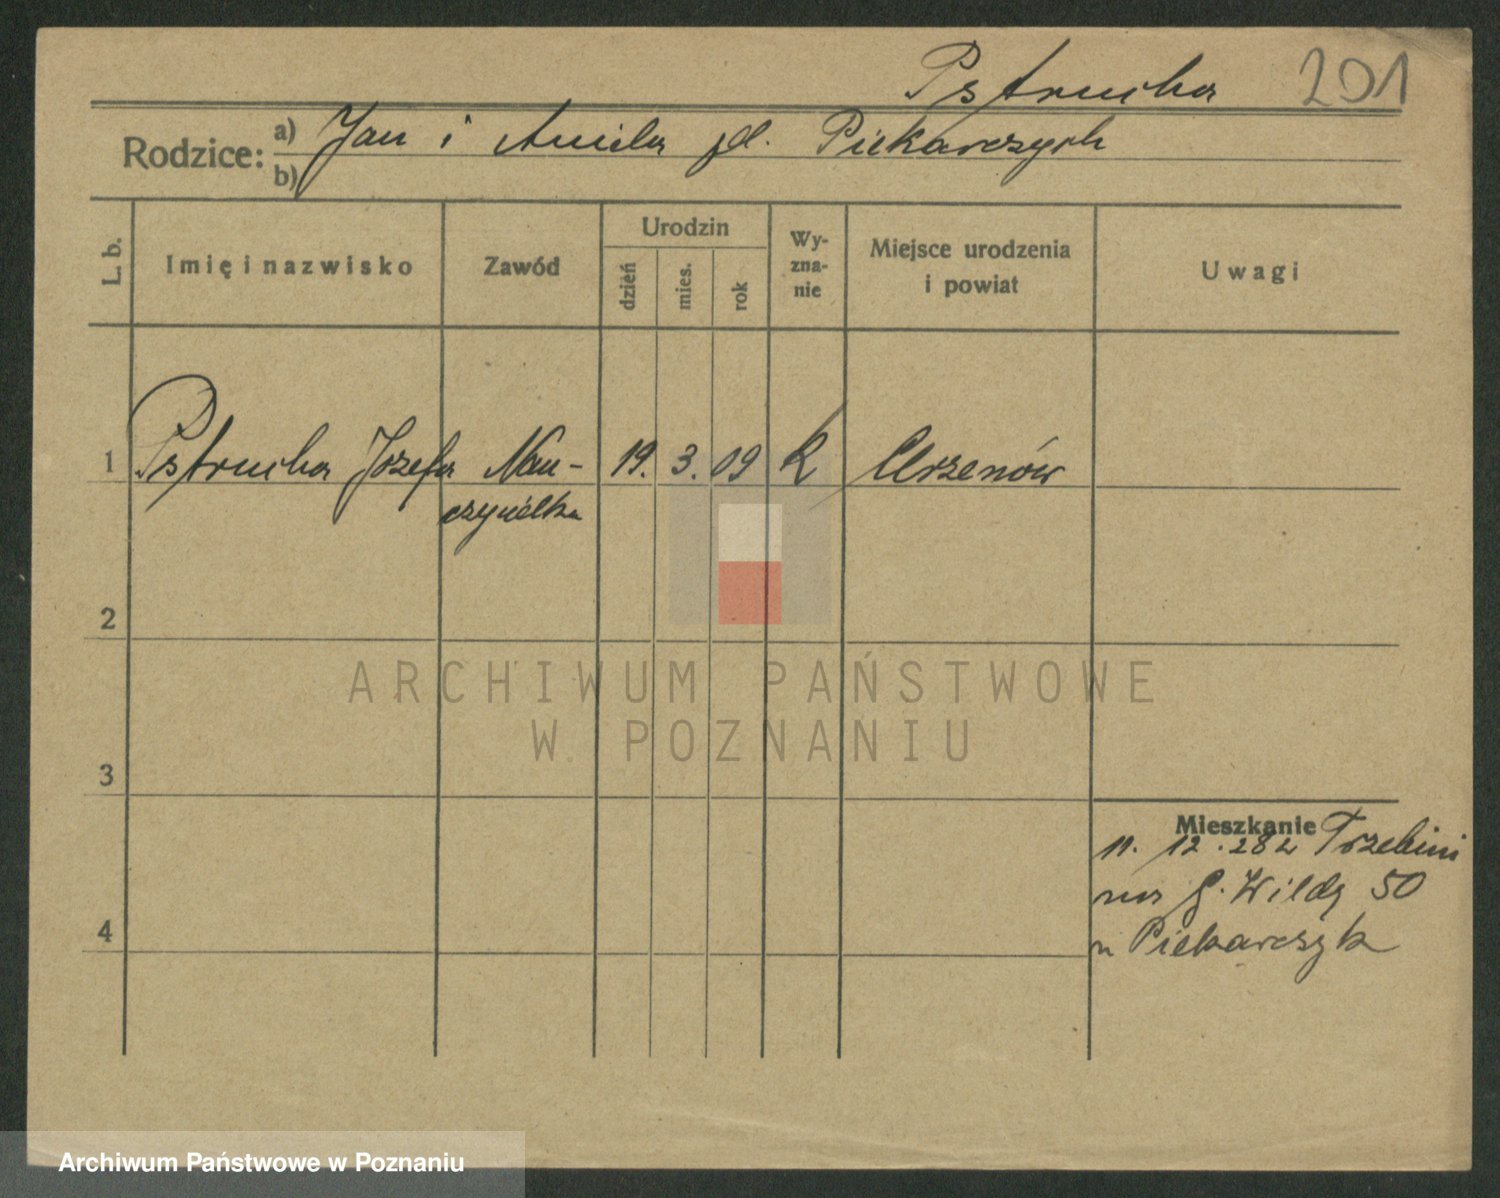 Pstrucha 201
Rodzice: a) Jan i Aniela
b) Piekarczyk
L. b. Imię i nazwisko Zawód Urodzin dzień mies. rok Wy-
zna-
nie Miejsce urodzenia
i powiat Uwagi
1 Pstrucha Józefa Nau- 19. 3. 09 k
czycielka
2
3
4
Mieszkanie
11. 12. 28 z Trzebini
na G. Wildę 50
u Piekarczyk
ARCHIWUM PAŃSTWOWE
W POZNANIU
Archiwum Państwowe w Poznaniu